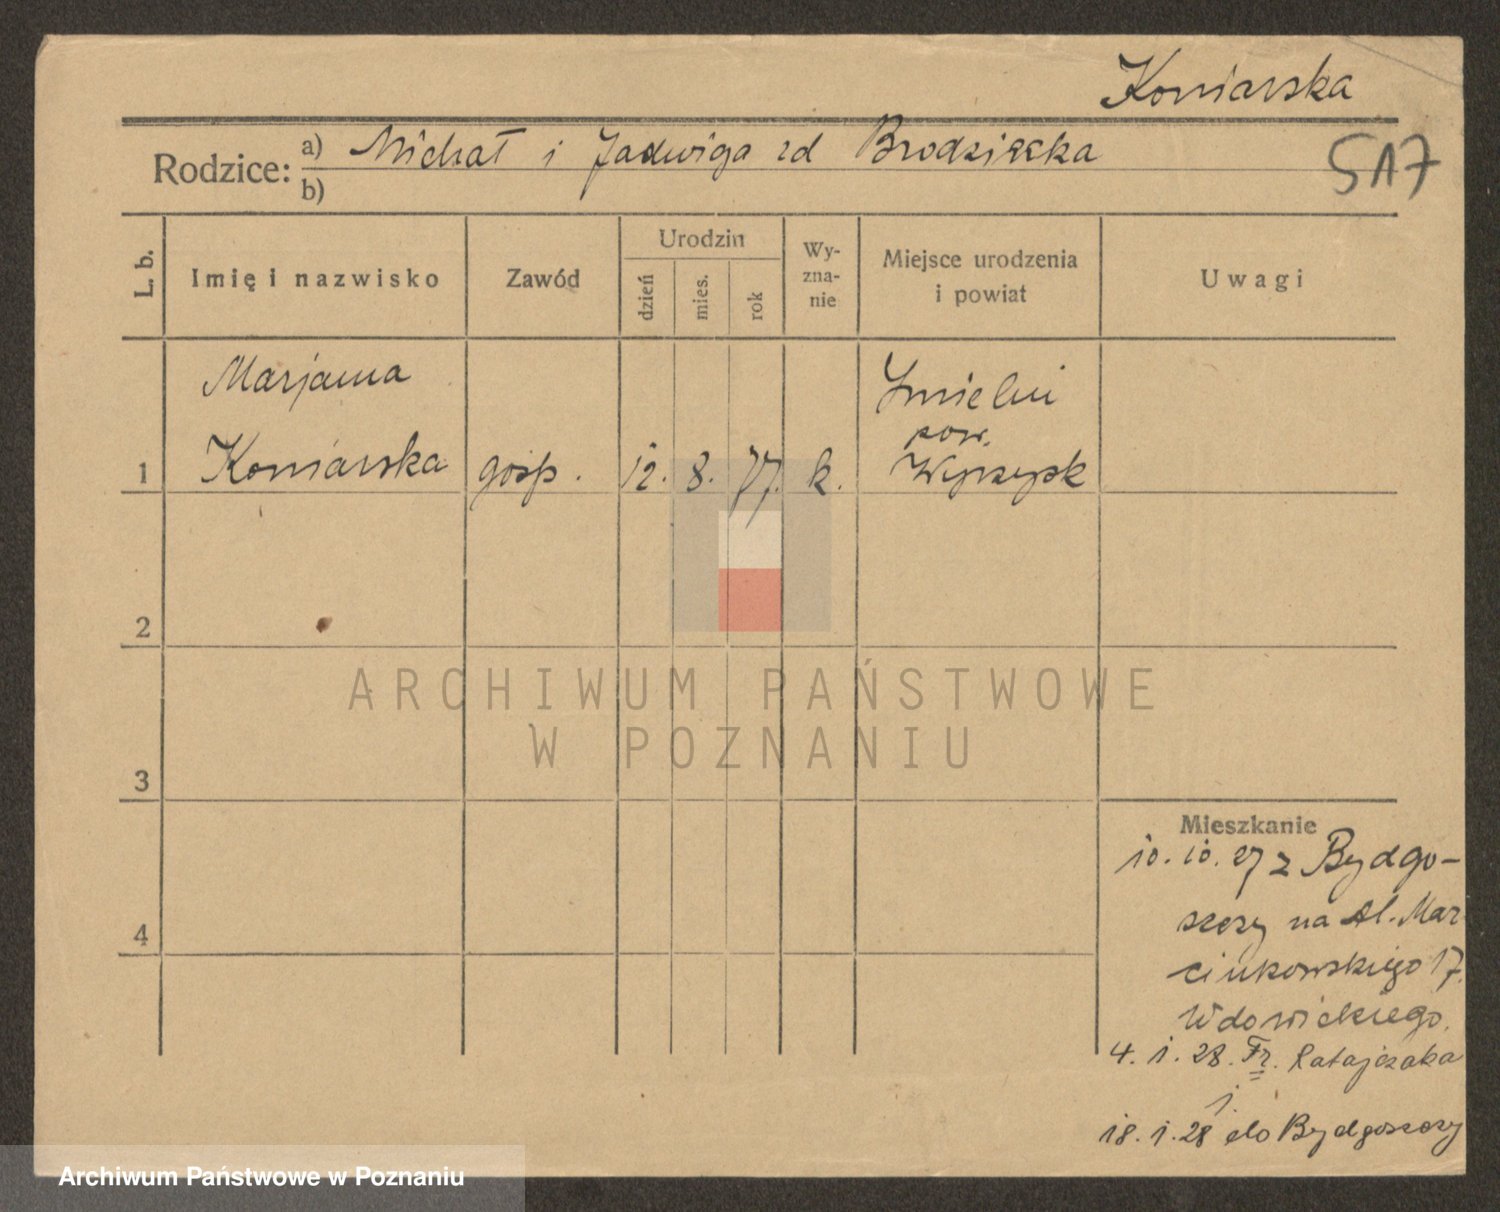 Koniarska
Rodzice: a) Michał i Jadwiga zd Brodzięcka
b)
517
L. b.
Imię i nazwisko
Zawód
Urodzin
dzień
mies.
rok
Wy-
zna-
nie
Miejsce urodzenia
i powiat
Uwagi
Marjanna
Koniarska
gosp.
12. 8. 77. k.
pow.
Wyrzysk
1
2
3
4
ARCHIWUM PAŃSTWOWE
W POZNANIU
Mieszkanie
10. 10. 27 z Bydgo-
szczy na Al. Mar
cinkowskiego 17.
Wdowickiego.
4. 1. 28. Fr. Ratajczaka
18. 1. 28 do Bydgoszczy
Archiwum Państwowe w Poznaniu